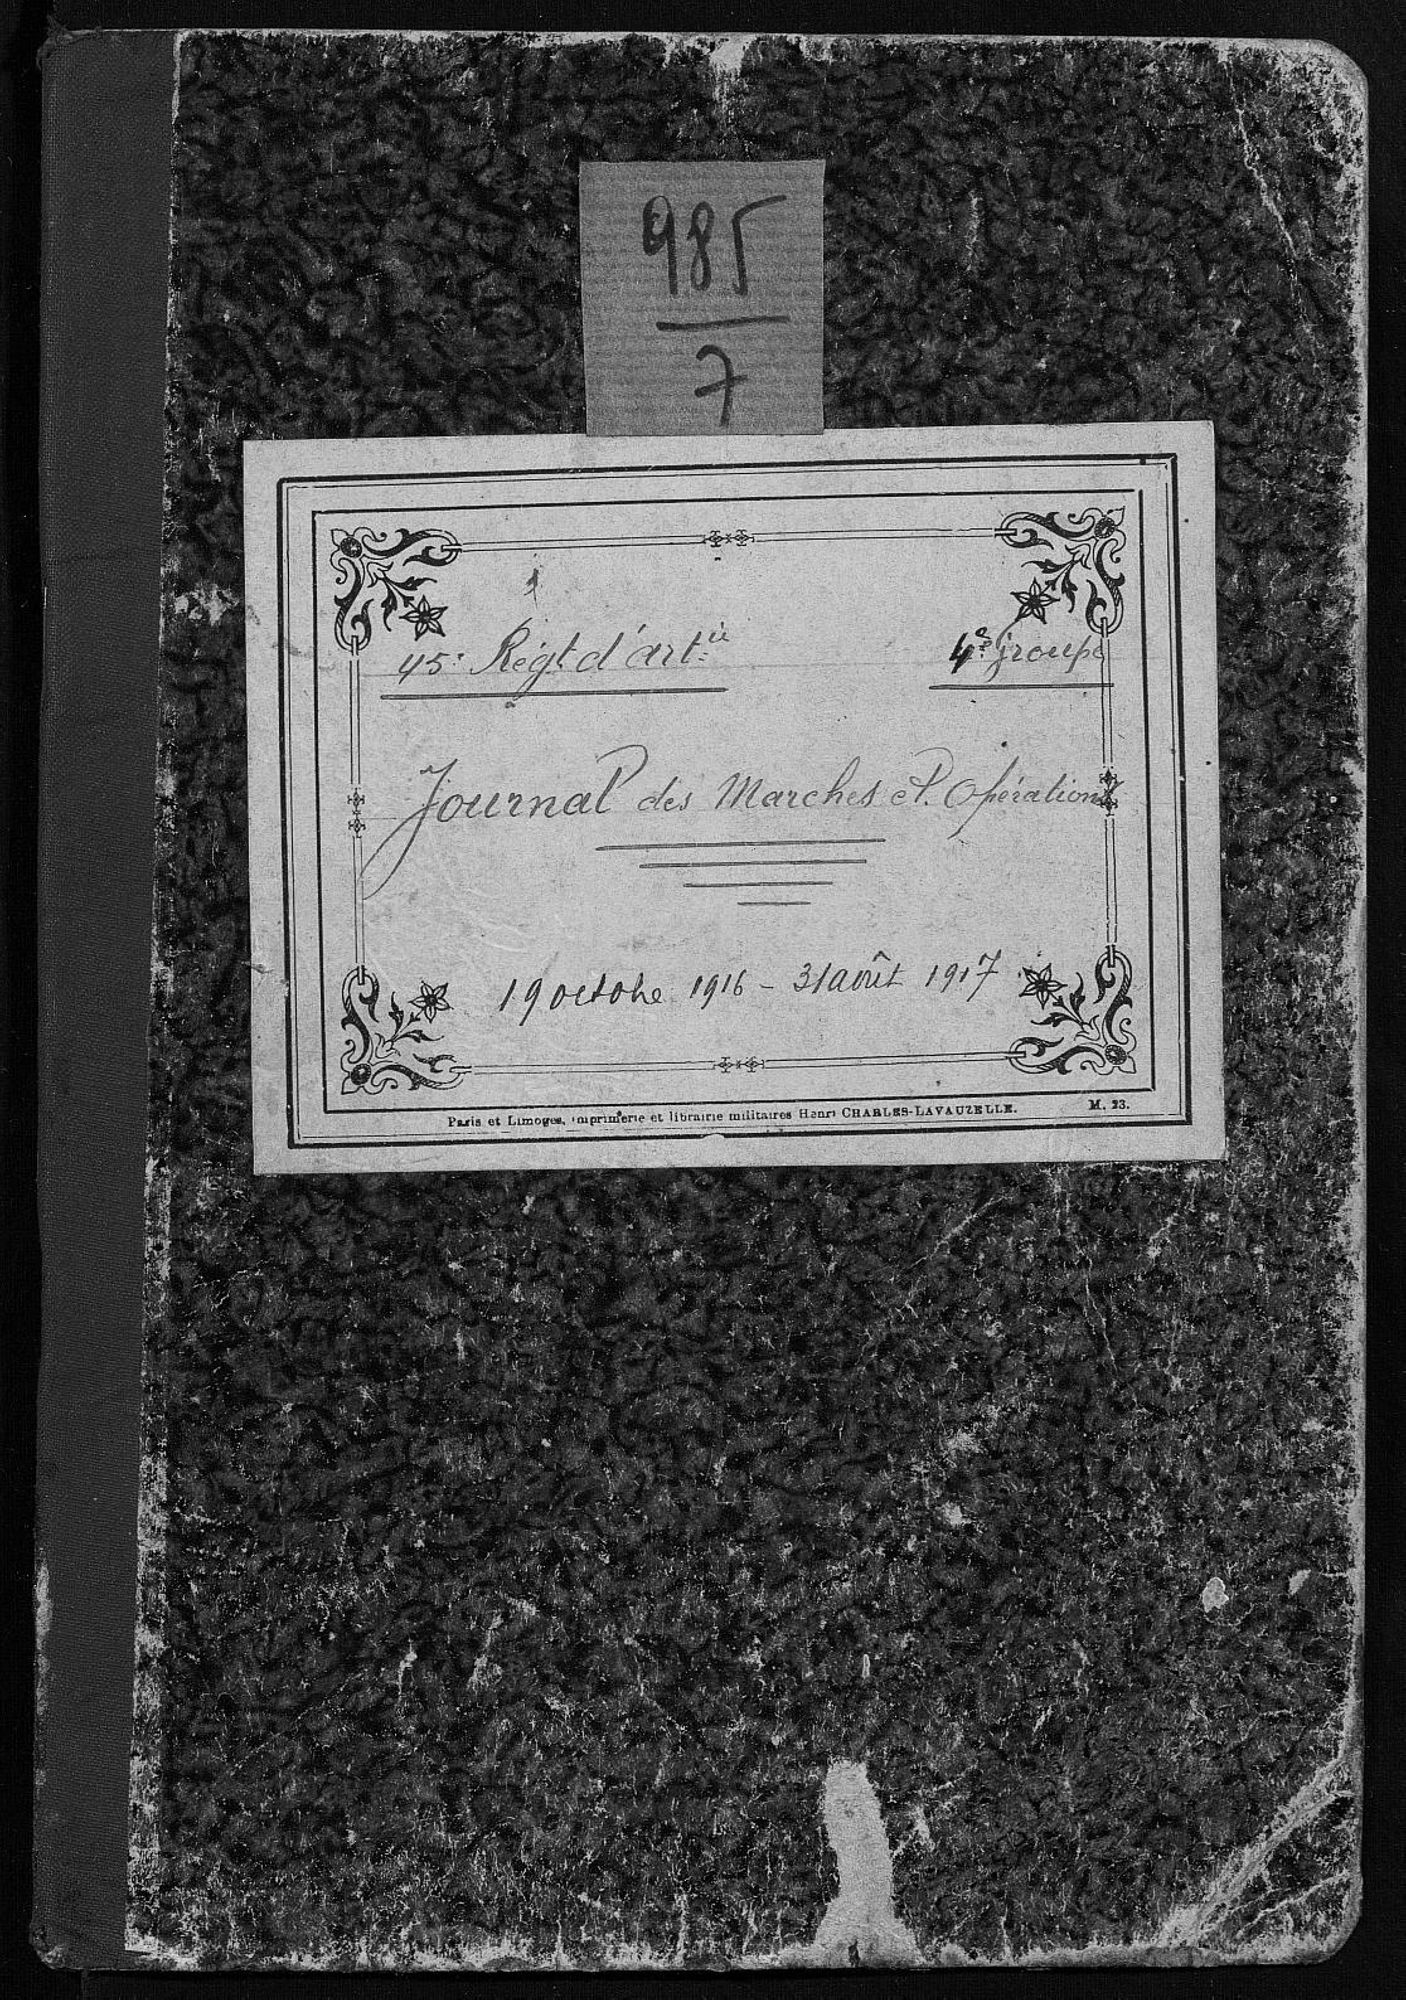 985
7
45e Régt d'artie 4e groupe
Journal des Marches et Opérations
19 octobre 1916 - 31 août 1917
Paris et Limoges, imprimerie et librairie militaires Henri CHARLES-LAVAUZELLE. M. 23.